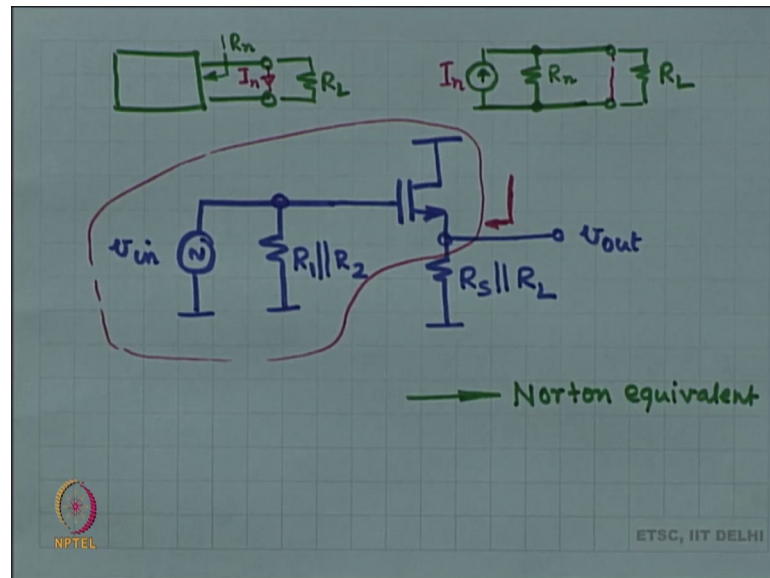 Rn
In
RL
In
Rn
RL
vin
R1||R2
vout
RS||RL
Norton equivalent
NPTEL
ETSC, IIT DELHI